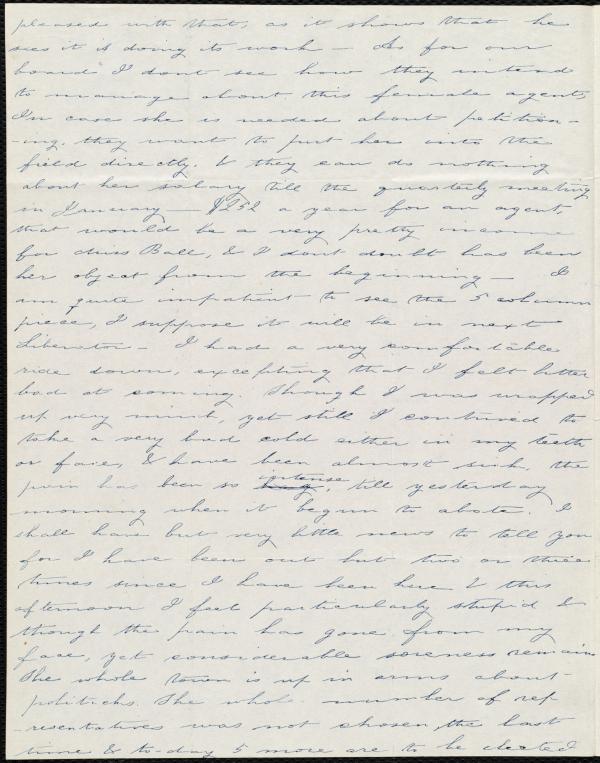 pleased with that, as it shows that he
sees it is doing its work – As for our
board I dont see how they intend
to manage about this female agent,
In case she is needed about petition-
-ing, they want to put her into the
field directly, & they can do nothing
about her salary till the quarterly meeting
in January – $252 a year for an agent,
that would be a very pretty income
for Miss Ball, & I dont doubt has been
her object from the beginning – I
am quite impatient to see the 5 column
piece, I suppose it will be in next
Liberator – I had a very comfortable
ride down, excepting that I felt bitter
bad at coming. Though I was wrapped
up very much, yet still I contrived to
take a very bad cold either in my teeth
or face, & have been almost sick, the
pain has been so intense, till yesterday
morning when it begun to abate. I
shall have but very little news to tell you
for I have been out but two or three
times since I have been here & this
afternoon I feel particularly stupid &
though the pain has gone from my
face, yet considerable soreness remains
The whole town is up in arms about
politicks. The whole number of rep-
-resentatives was not chosen the last
time & to-day 5 more are to be elected